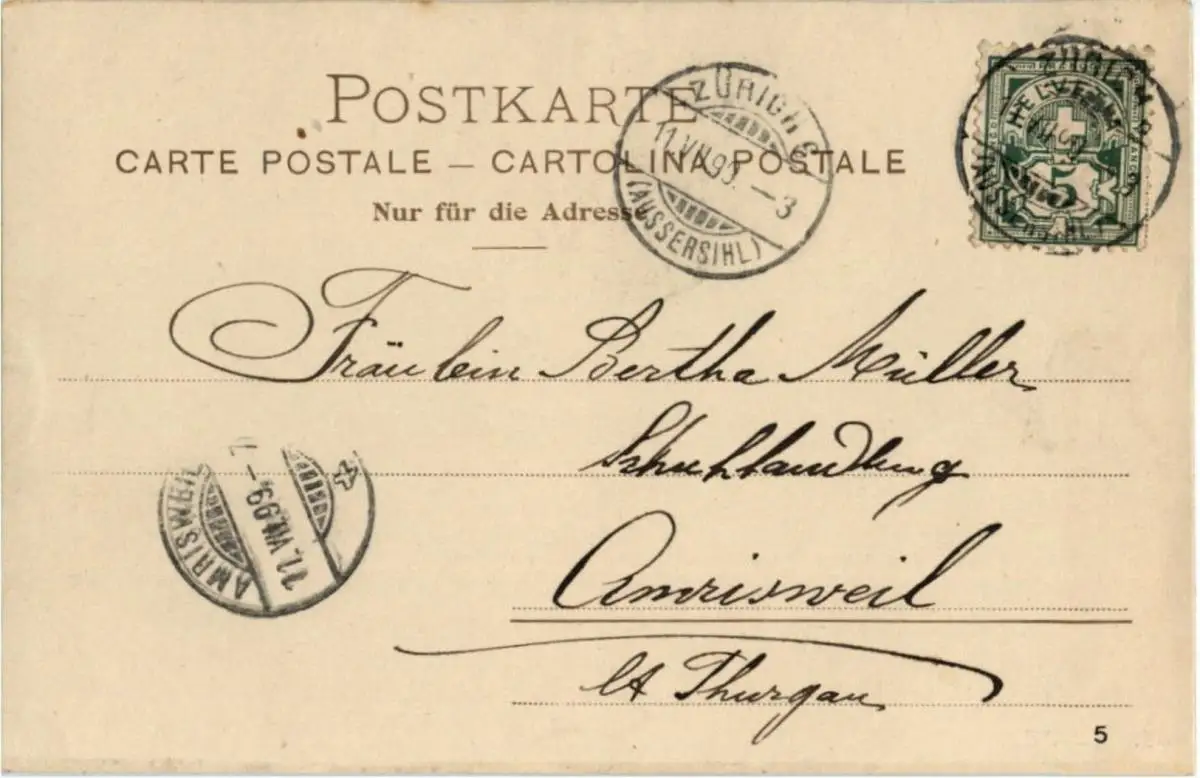 POSTKARTE
CARTE POSTALE – CARTOLINA POSTALE
Nur für die Adresse
ZÜRICH
11.VII.99. – 3
(AUSSERSIHL)
HELVETIA
5
Fräulein Bertha Müller
Schuhhandlung
Amrisweil
Kt Thurgau
AMRISWEIL
11.VII.99
5